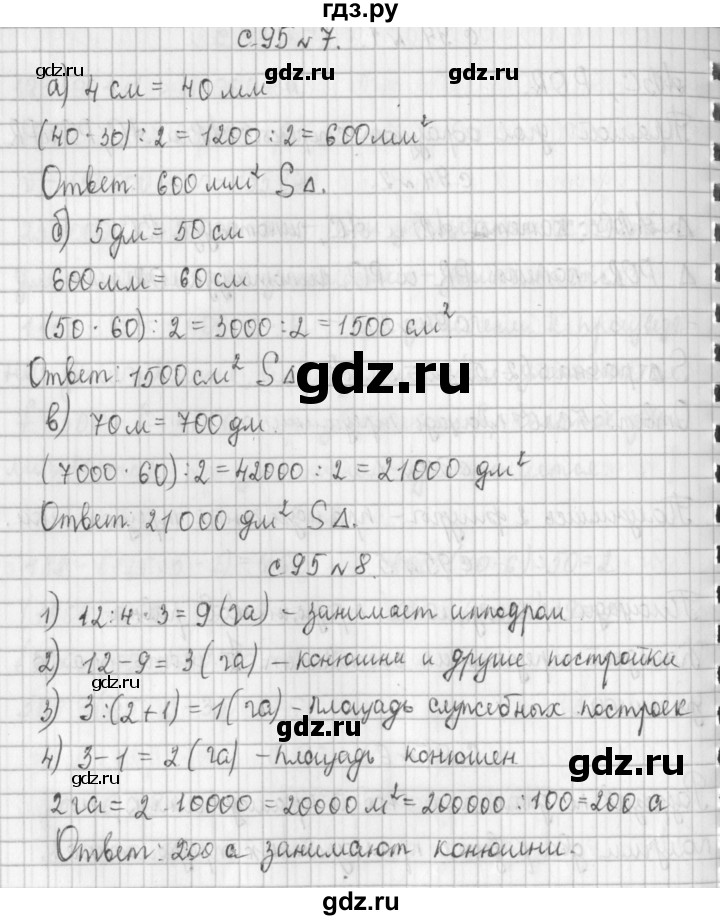 гдз.ру
с.95 №7.
gdz.ru gdz.ru
а) 4 см = 40 мм
(40 · 30) : 2 = 1200 : 2 = 600 мм²
Ответ: 600 мм² S Δ.
gdz.ru gdz.ru
б) 5 дм = 50 см
600 мм = 60 см
(50 · 60) : 2 = 3000 : 2 = 1500 см²
Ответ: 1500 см² S Δ
gdz.ru
в) 70 м = 700 дм.
(7000 · 60) : 2 = 42000 : 2 = 21000 дм²
Ответ: 21000 дм² S Δ.
gdz.ru gdz.ru
с.95 №8.
1) 12 : 4 · 3 = 9 (га) - занимает ипподром
2) 12 - 9 = 3 (га) - конюшни и другие постройки
gdz.ru
3) 3 : (2 + 1) = 1 (га) - площадь служебных построек
gdz.ru
4) 3 - 1 = 2 (га) - площадь конюшен
gdz.ru gdz.ru
2 га = 2 · 10000 = 20000 м² = 200000 : 100 = 200 а
Ответ: 200 а занимают конюшни.
gdz.ru
gdz.ru